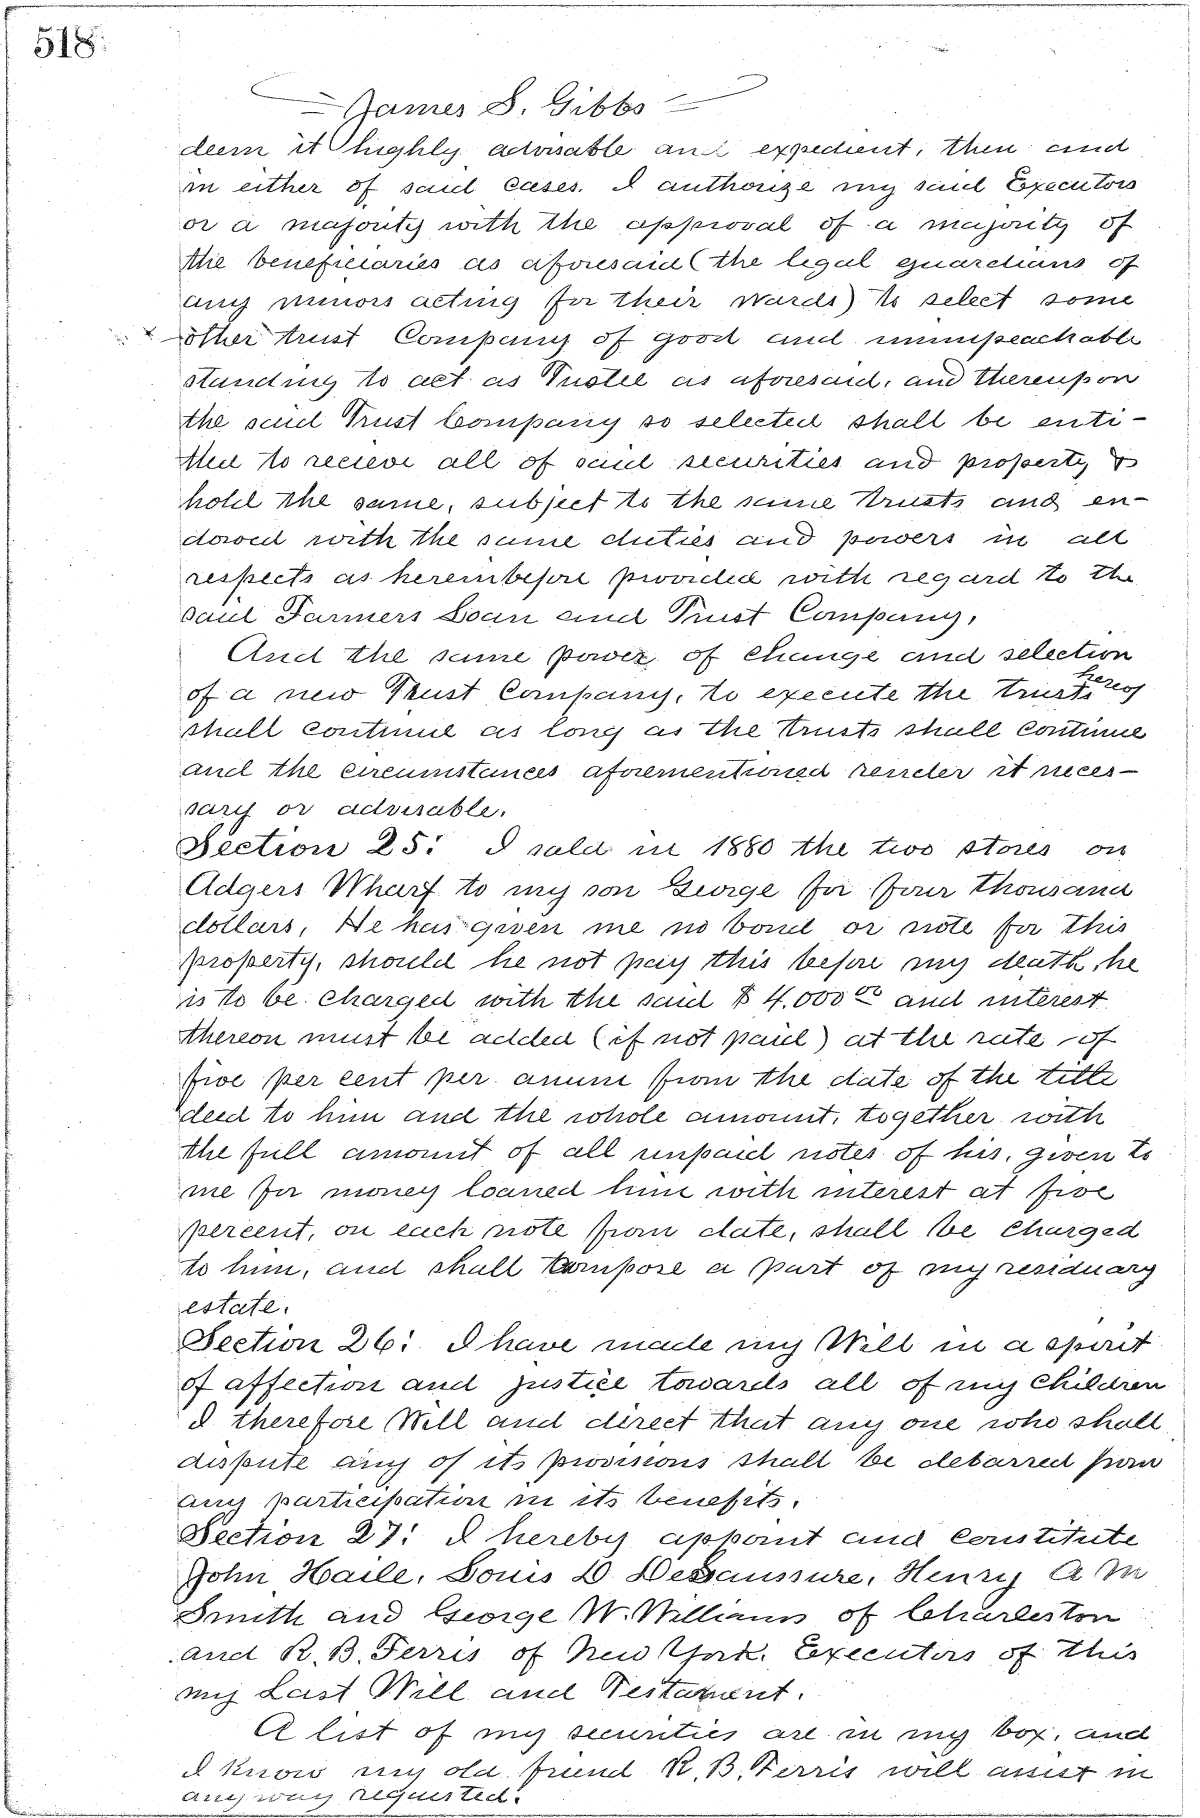 518
James S. Gibbs
deem it highly advisable and expedient, then and
in either of said cases. I authorize my said Executors
or a majority with the approval of a majority of
the beneficiaries as aforesaid (the legal guardians of
any minors acting for their wards) to select some
other trust Company of good and unimpeachable
standing to act as Trustee as aforesaid, and thereupon
the said Trust Company so selected shall be enti-
tled to recieve all of said securities and property &
hold the same, subject to the same trusts and en-
dowed with the same duties and powers in all
respects as hereinbefore provided with regard to the
said Farmers Loan and Trust Company,
And the same power of change and selection
of a new Trust Company, to execute the trusts hereof
shall continue as long as the trusts shall continue
and the circumstances aforementioned render it neces-
sary or advisable.
Section 25: I sold in 1880 the two stores on
Adgers Wharf to my son George for four thousand
dollars, He has given me no bond or note for this
property, should he not pay this before my death, he
is to be charged with the said $4.000 00 and interest
thereon must be added (if not paid) at the rate of
five per cent per anum from the date of the title
deed to him and the whole amount, together with
the full amount of all unpaid notes of his, given to
me for money loaned him with interest at five
percent, on each note from date, shall be charged
to him, and shall compose a part of my residuary
estate.
Section 26: I have made my Will in a spirit
of affection and justice towards all of my children
I therefore Will and direct that any one who shall
dispute any of its provisions shall be debarred from
any participation in its benefits.
Section 27: I hereby appoint and constitute
John Haile, Louis D DeSaussure, Henry A M
Smith and George W. Williams of Charleston
and R. B. Ferris of New York. Executors of this
my Last Will and Testament.
A list of my securities are in my box, and
I know my old friend R. B. Ferris will assist in
any way requested.